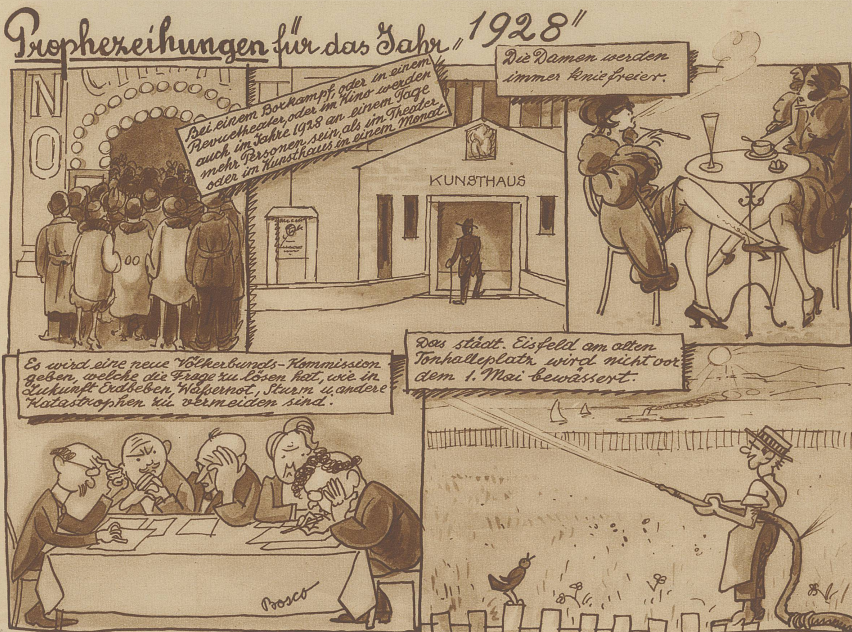 Prophezeihungen für das Jahr „1928"
KINO
Bei einem Boxkampf, oder in einem
Revuetheater, oder im Kino werden
auch im Jahre 1928 an einem Tage
mehr Personen sein, als im Theater
oder im Kunsthaus in einem Monat.
KUNSTHAUS
Die Damen werden
immer kniefreier.
Es wird eine neue Völkerbunds-Kommission
geben, welche die Frage zu lösen hat, wie in
Zukunft Erdbeben, Hungersnot, Sturm u. andere
Katastrophen zu vermeiden sind.
Das städt. Eisfeld am alten
Tonhalleplatz wird nicht vor
dem 1. Mai bewässert.
Bosco